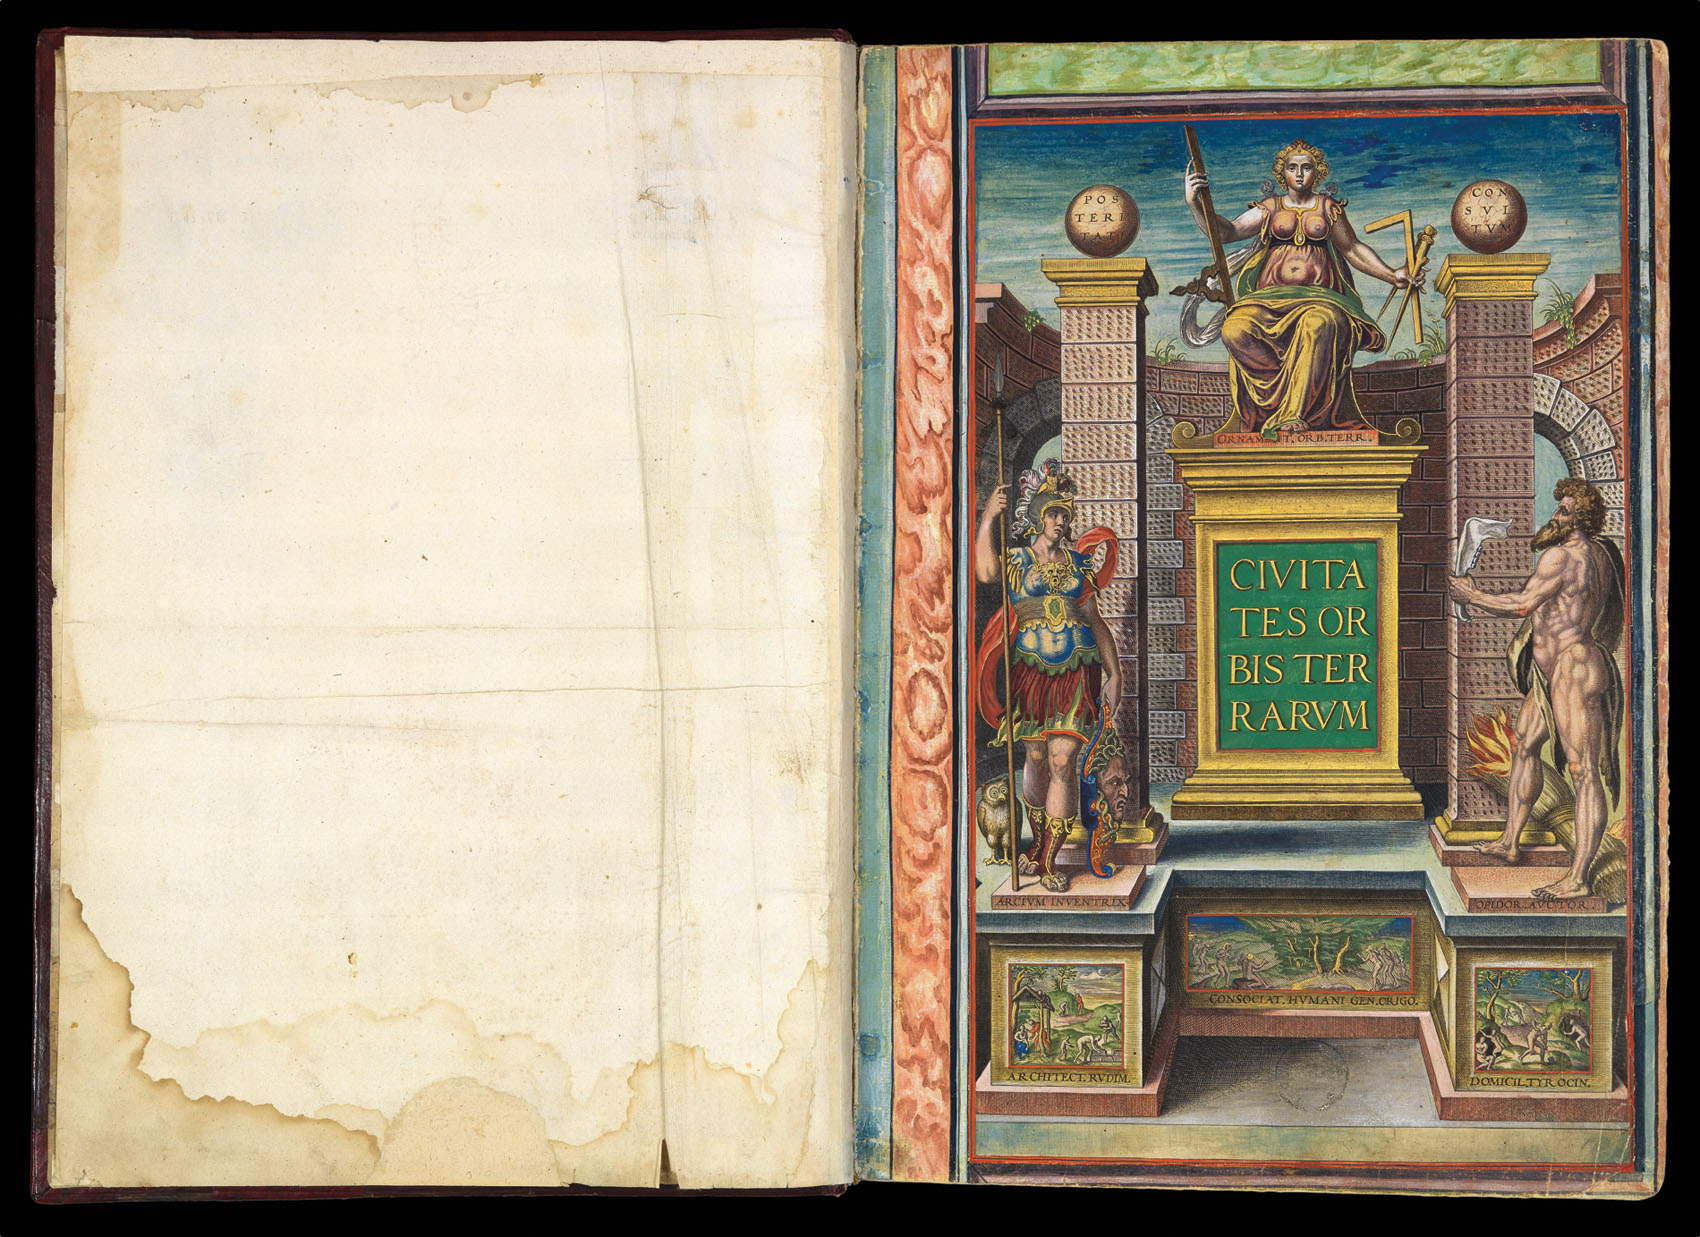 POS
TERI
TATI
CON
SVL
TVM
ORNAMENT. ORB. TERR.
CIVITA
TES OR
BIS TER
RARVM
ARCIVM INVENTRIX
OPIDOR. AVCTOR.
CONSOCIAT. HVMANI GEN. ORIGO.
ARCHITECT. RVDIM.
DOMICIL. TYROCIN.